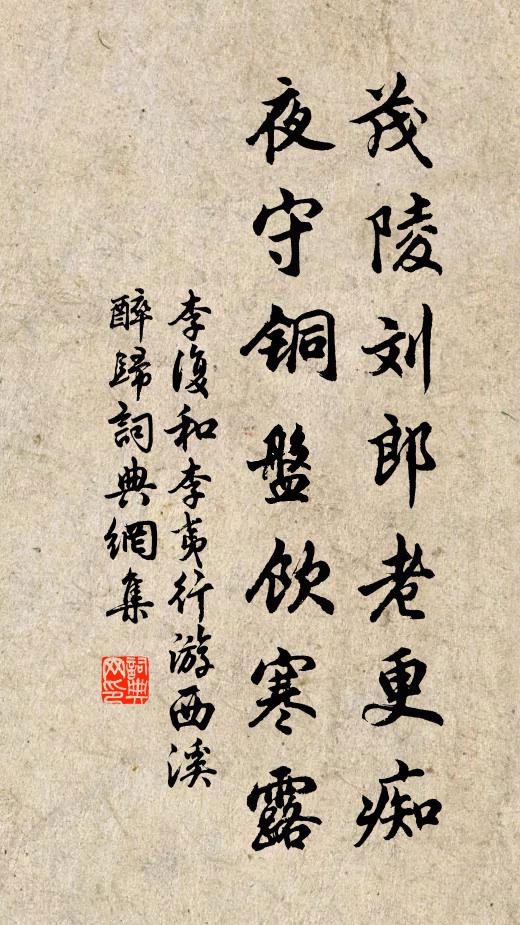 茂陵刘郎老更痴
夜守铜盤饮寒露
李復和李夷行游西溪
醉歸詞典網集
詞典
网印